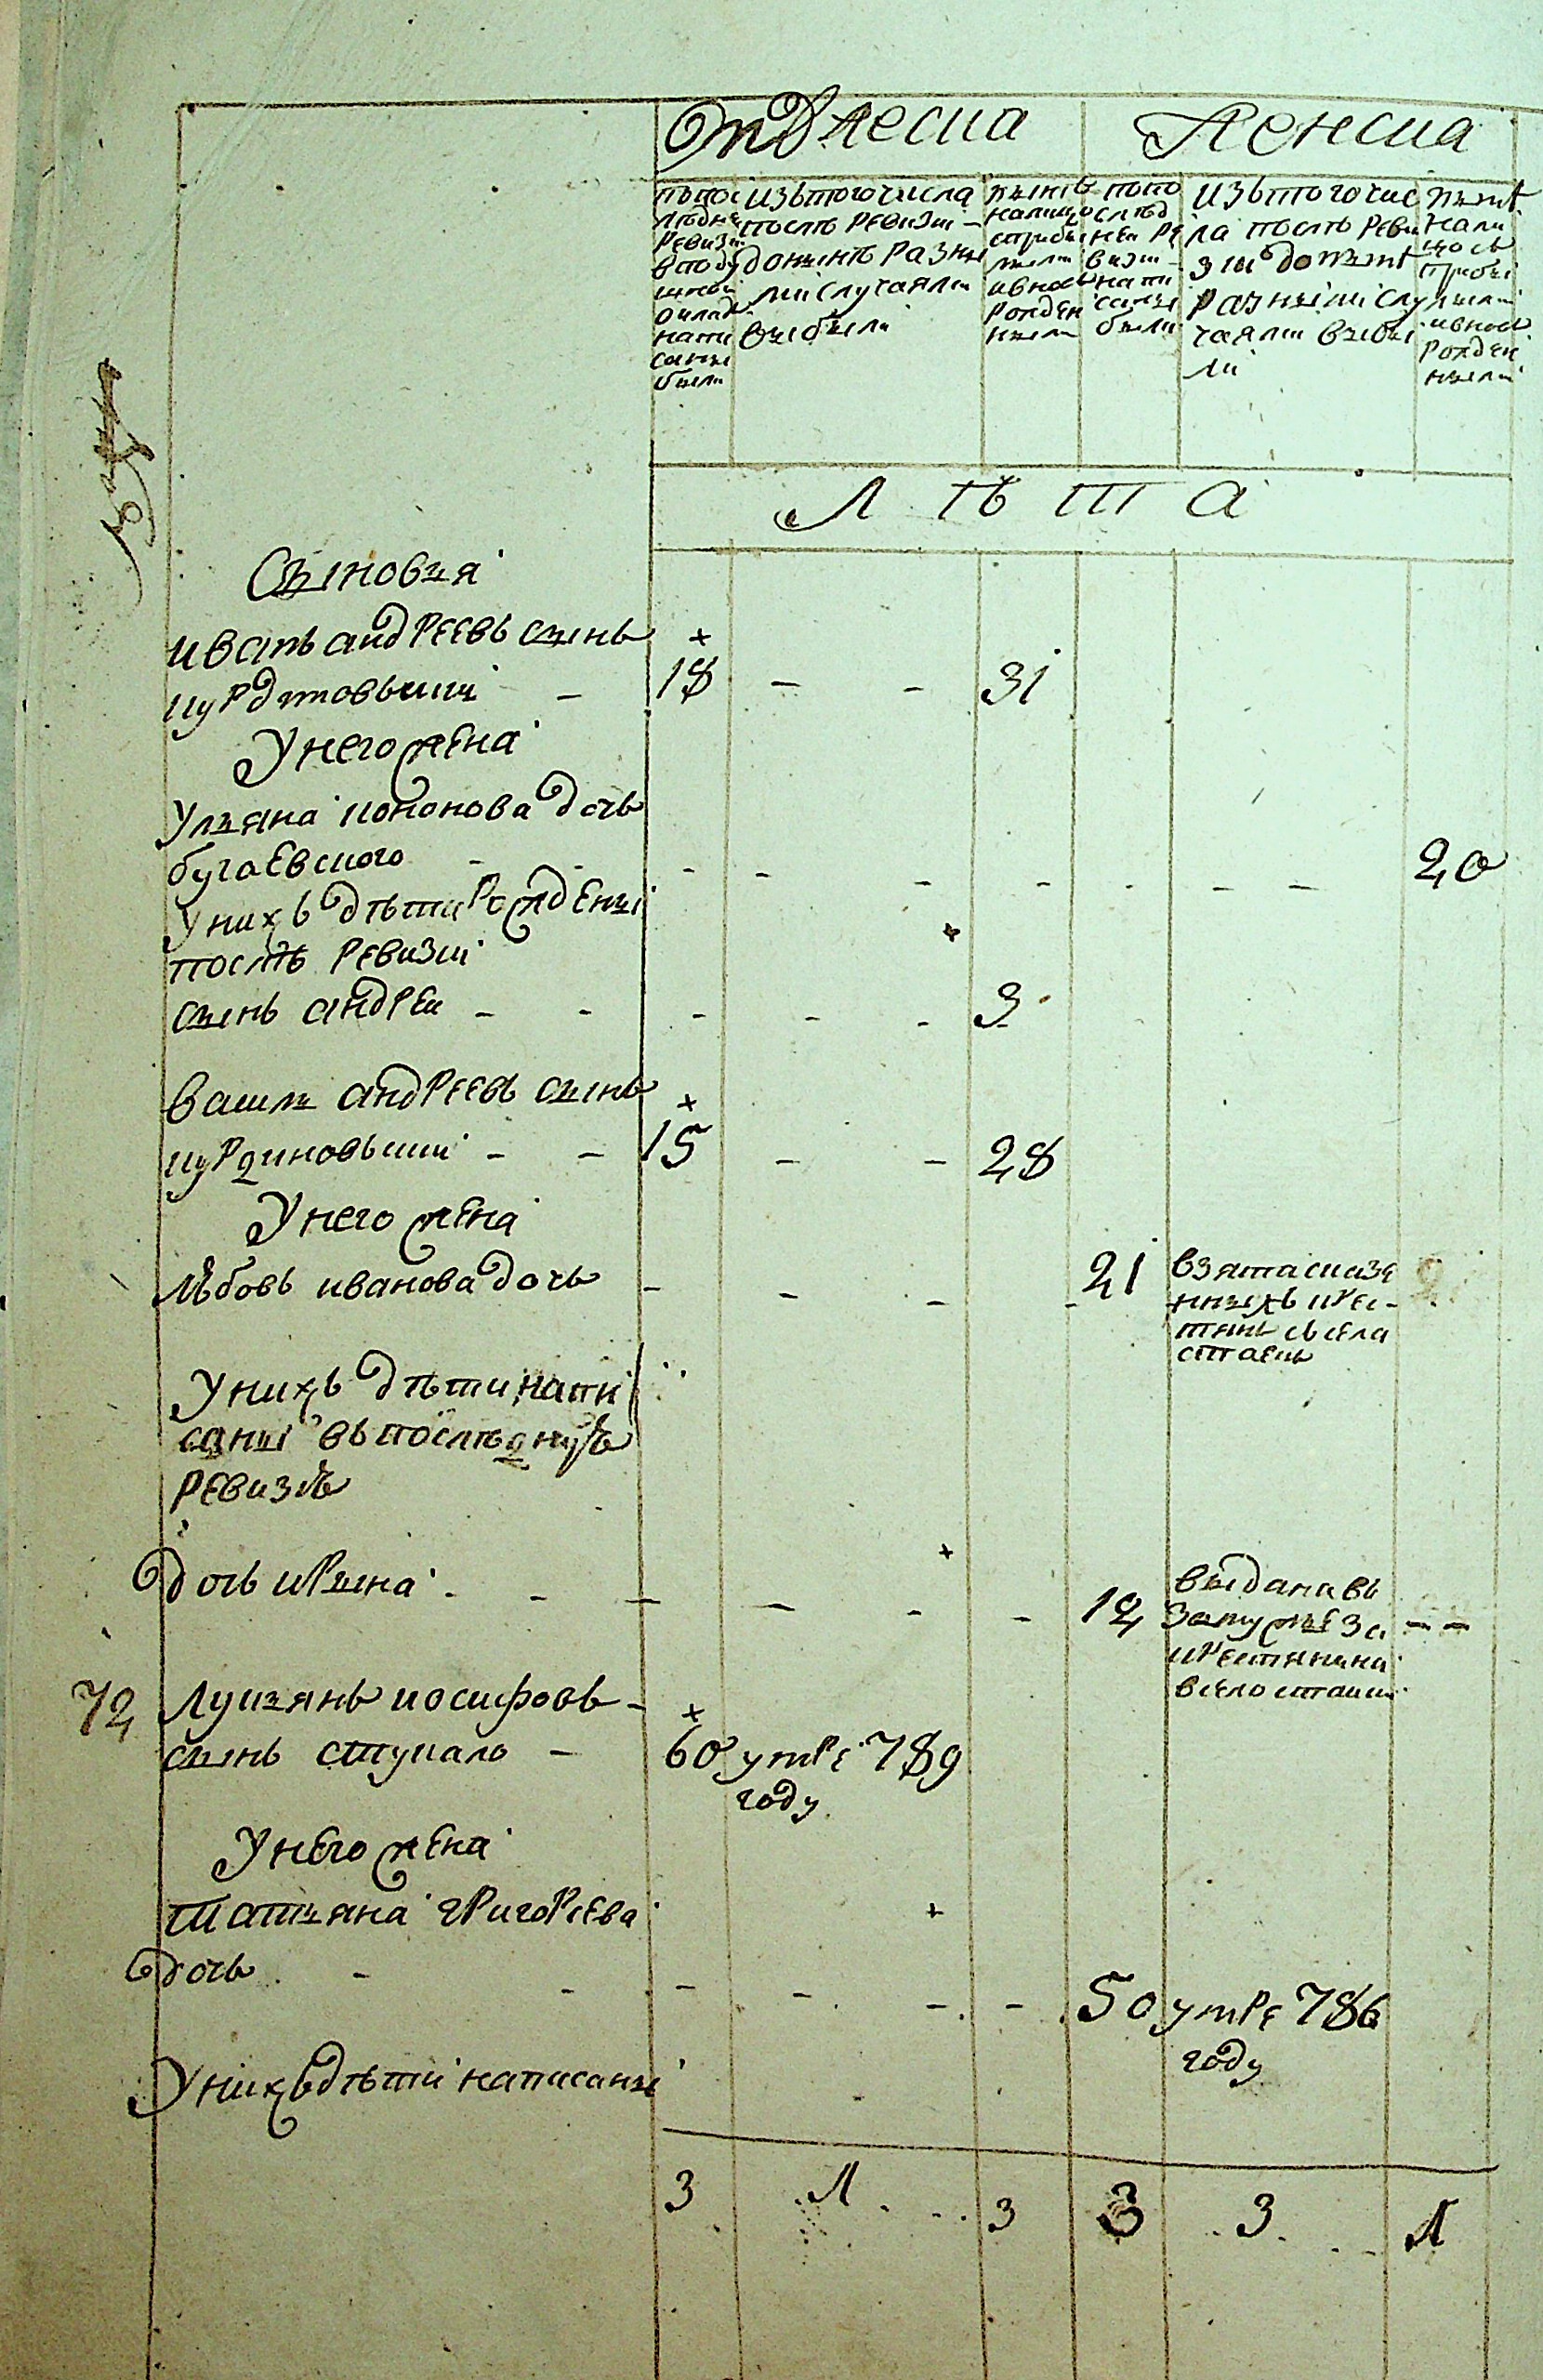 женска
по по
следне
ревизи
в поду
шной
оклад
напи
саны
были
изъ того числа
после ревизии
до ныне разны
ми случаями
выбыли
ныне
налицо
с прибы
лыми
и вновь
рожден
ными
по по
след
ней ре
визи
напи
саны
были
изъ того чис
ла после реви
зии до ныне
разными слу
чаями выбы
ли
ныне
нали
цо съ
прибы
лыми
и вновь
рожден
ными
Л ѣ т а
Сыновья
иванъ андреевъ сынъ
18 - - 31
У него жена
Ульяна кононова дочь
бугаевского - - - - - - - - 20
У нихъ дѣти рожденыі
послѣ ревизиі
сынъ андреи - - - - - 3
василь андреевъ сынъ
15 - - 28
У него жена
любовь иванова дочь - - - - 21 взята с казе
нныхъ крес-
тянъ съ села
У нихъ дѣти напи
саныі въ послѣднюю
ревизію
дочь ирына - - - - - - 12 выдана въ
замужъе за - -
крестянина
в село
72 Лукьянъ иосифовъ -
сынъ ступаль - 60 умре 789
году
У него жена
Татьяна григориева
дочь - - - - - - 50 умре 786
году
У нихъ дѣти написаны
3 1 3 3 3 1